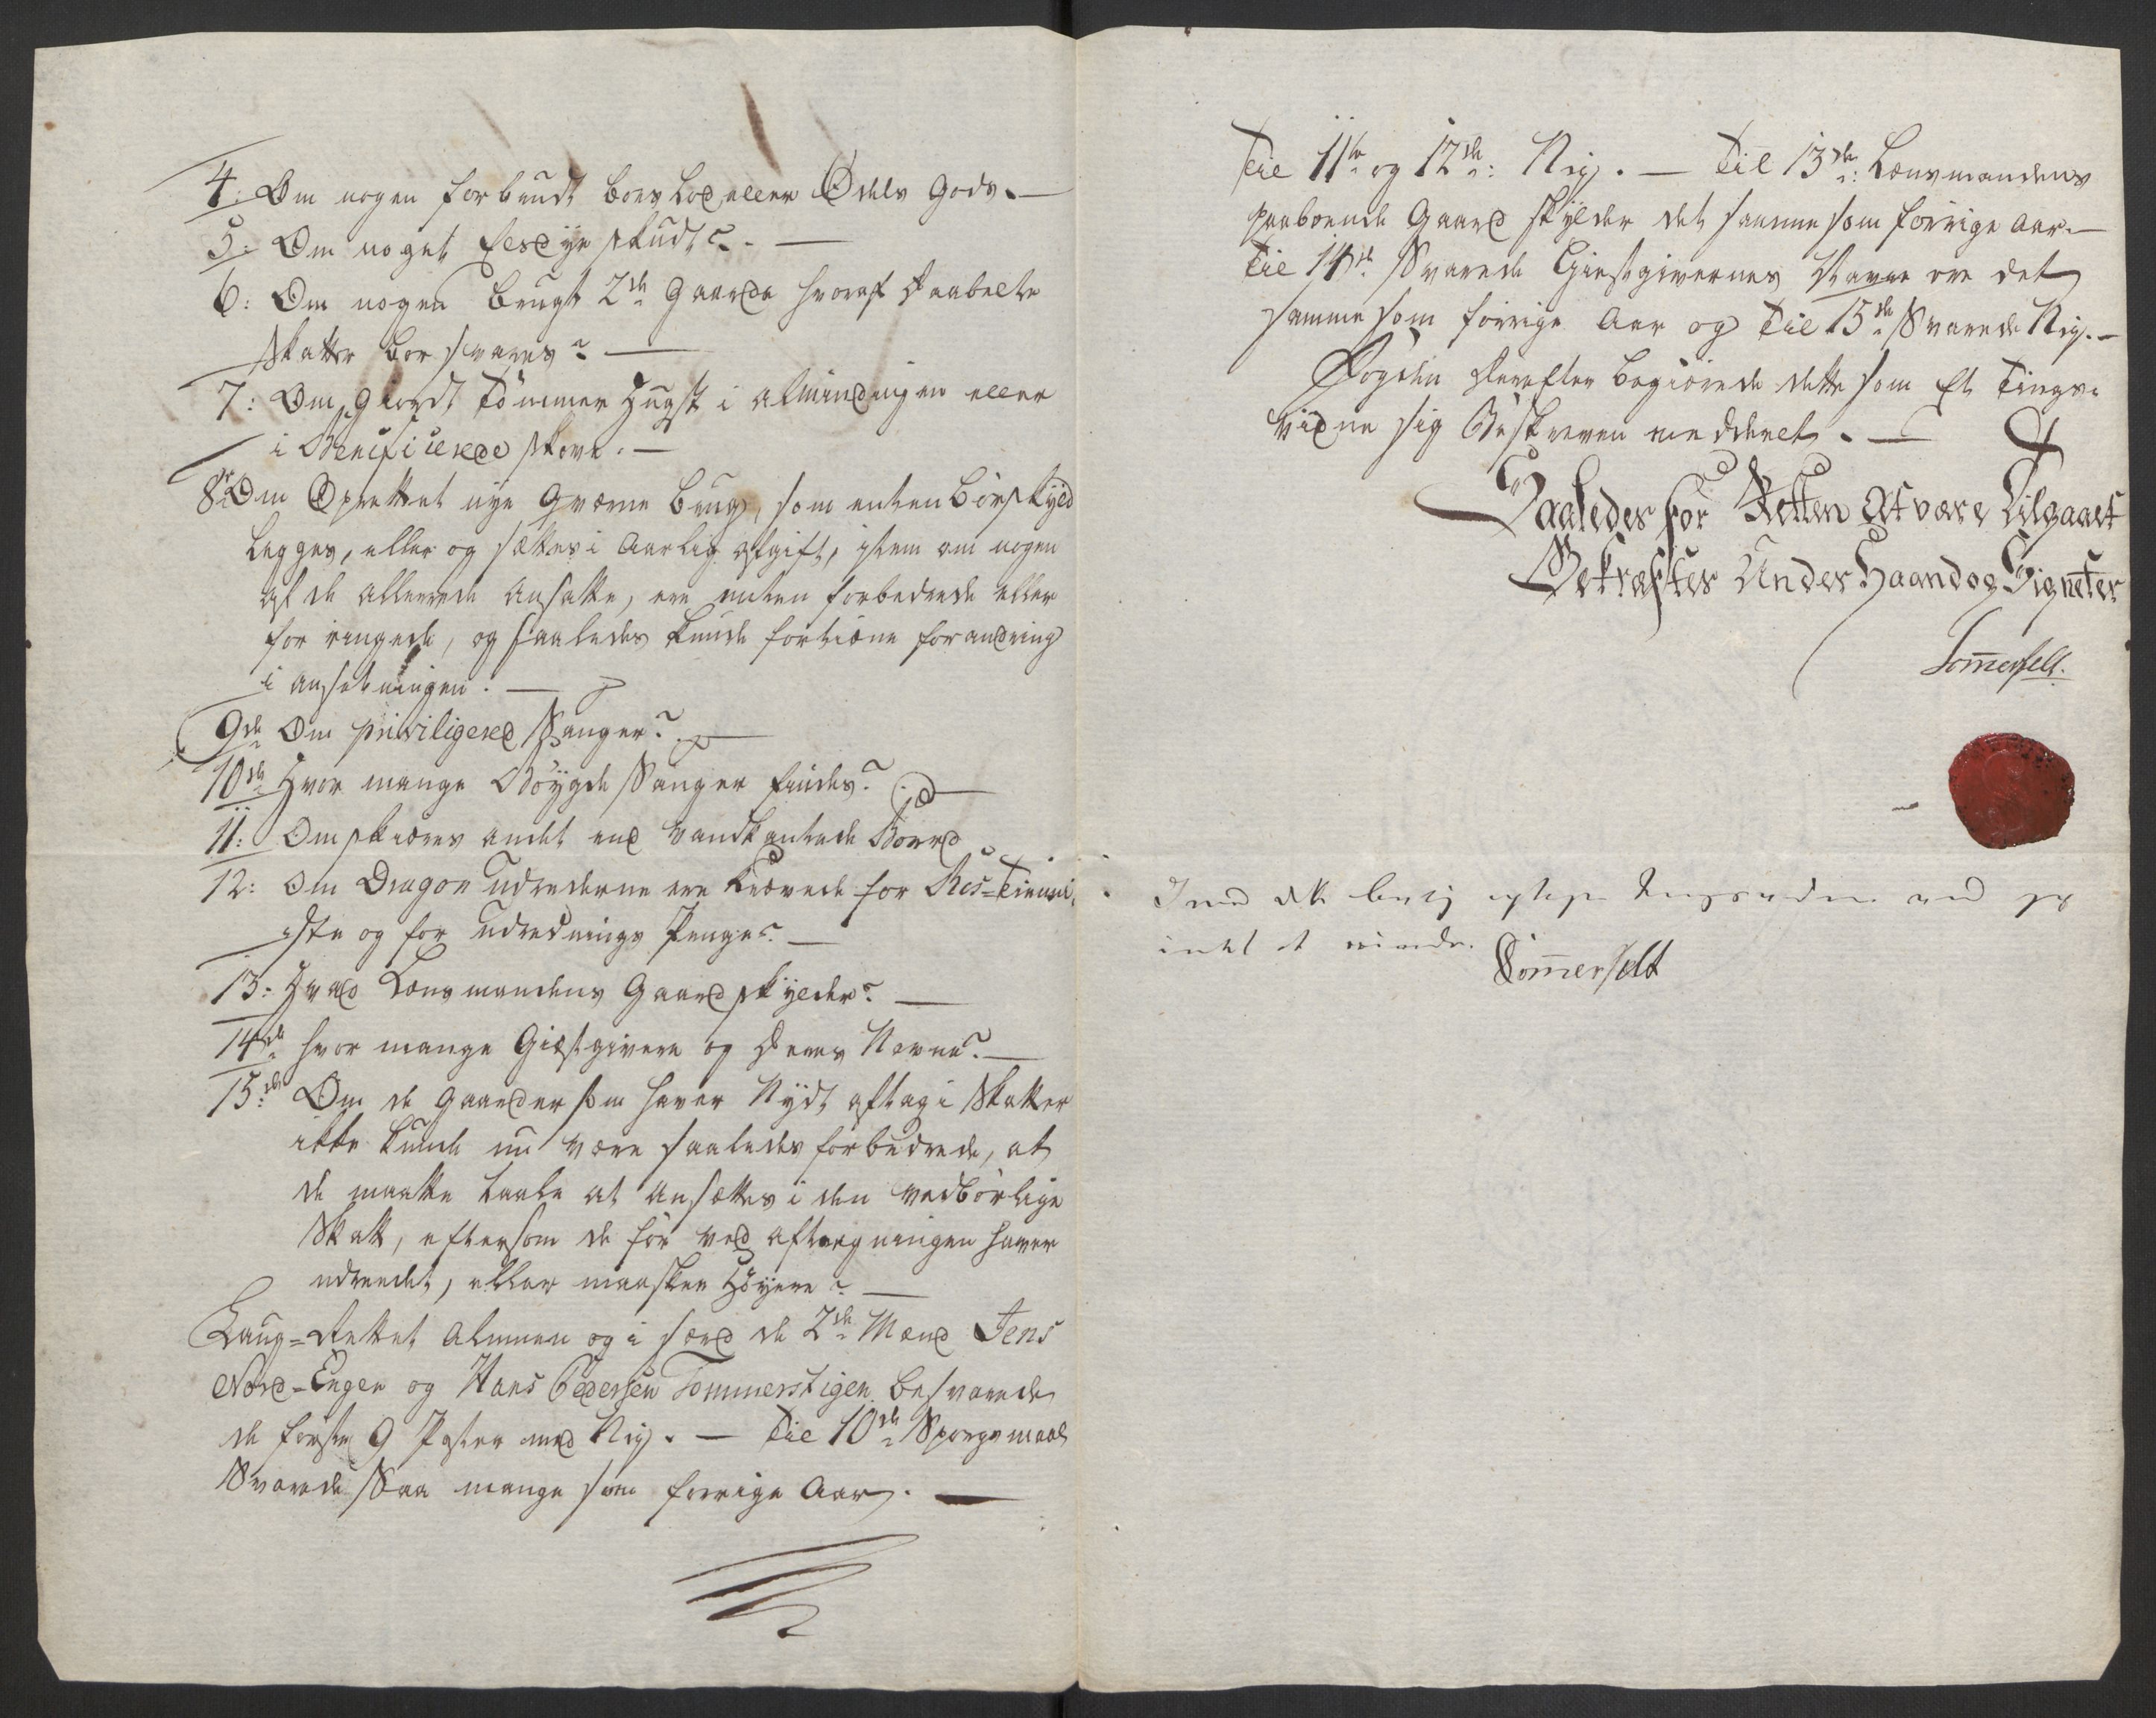 4: Om nogen forbrudt boeslod eller Odels Gods. —
5: Om noget Elsdyr skudt? —
6: Om nogen brugt 2de Gaarde hvoraf Daabelte
Skatter bør svares? —
7: Om giordt Tømmer Hugst i Almindingen eller
i Beneficerede skove. —
8de Om Oprettet nye Qværne brug, som enten bør skyld
legges, eller og sættes i Aarlig afgift, item om nogen
af de allerrede ansatte, ere enten forbedrede eller
for ringede, og saaledes kunde fortiene forandring
i ansetningen. —
9de Om priviligered Sauger? —
10de Hvor mange Bøygde Sauger findes? —
11: Om skiæres andet end vandkantede Bord
12: Om Dragon Udrederne ere Krævede for Ros-Tieni-
iste og for udrednings Penge? —
13: Hvad Lensmandens Gaard skylder? —
14de hvor mange Giæstgivere og Deres Navne? —
15de Om de Gaarder som haver Nydt aftag i Skatter
ikke kunde nu være saaledes forbedrede, at
de maatte taale at ansættes i den vedbørlige
Skatt, eftersom de før ved aftagningen haver
udreedet, eller maaskee Høyere? —
Laug-Rettet Almuen og i særd de 2de Mænd Jens
Nord-Engen og Hans Pedersen Tommerstigen besvarede
de første 9 Poster med Nej. — Til 10de Spørgsmaal
Svarede Saa mange som forrige Aar. —
Til 11te og 12de: Nej. — Til 13de: Lensmandens
paaboende Gaard skylder det samme som forrige Aar. —
Til 14de Svarede Giestgivernes Navne ere det
samme som forrige Aar og Til 15de Svarede Nej. —
Fogden Derefter begiærede dette som Et Tings-
vidne sig Beskreven meddelet. —
Saaledes for Retten at være Tilgaaet
Bekræftes Under Haand og Signeter
Sommerfelt.
intet at erindre.
Sommerfelt